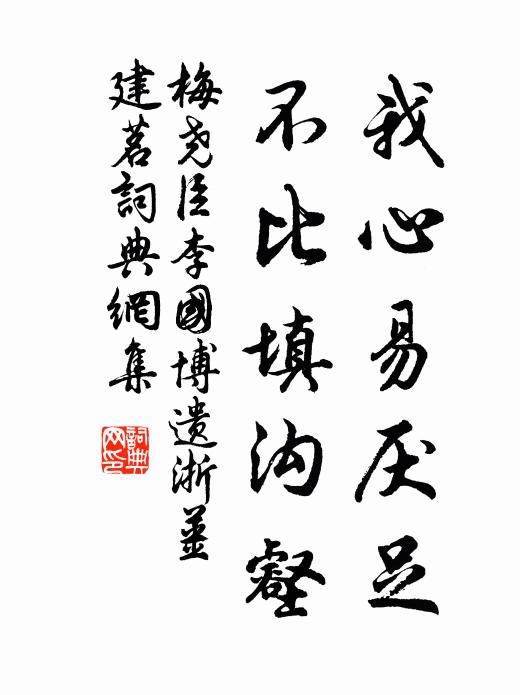 我心易厌足
不比填沟壑
梅尧臣李國博遗浙薑
建茗詞典網集
詞典网印